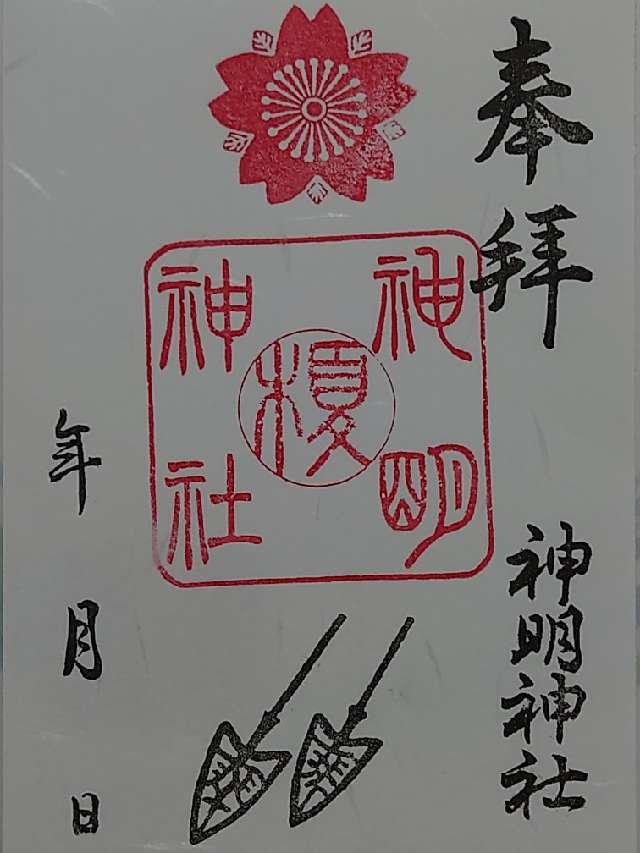 奉拝
神明
榎
神社
神明神社
年
月
日